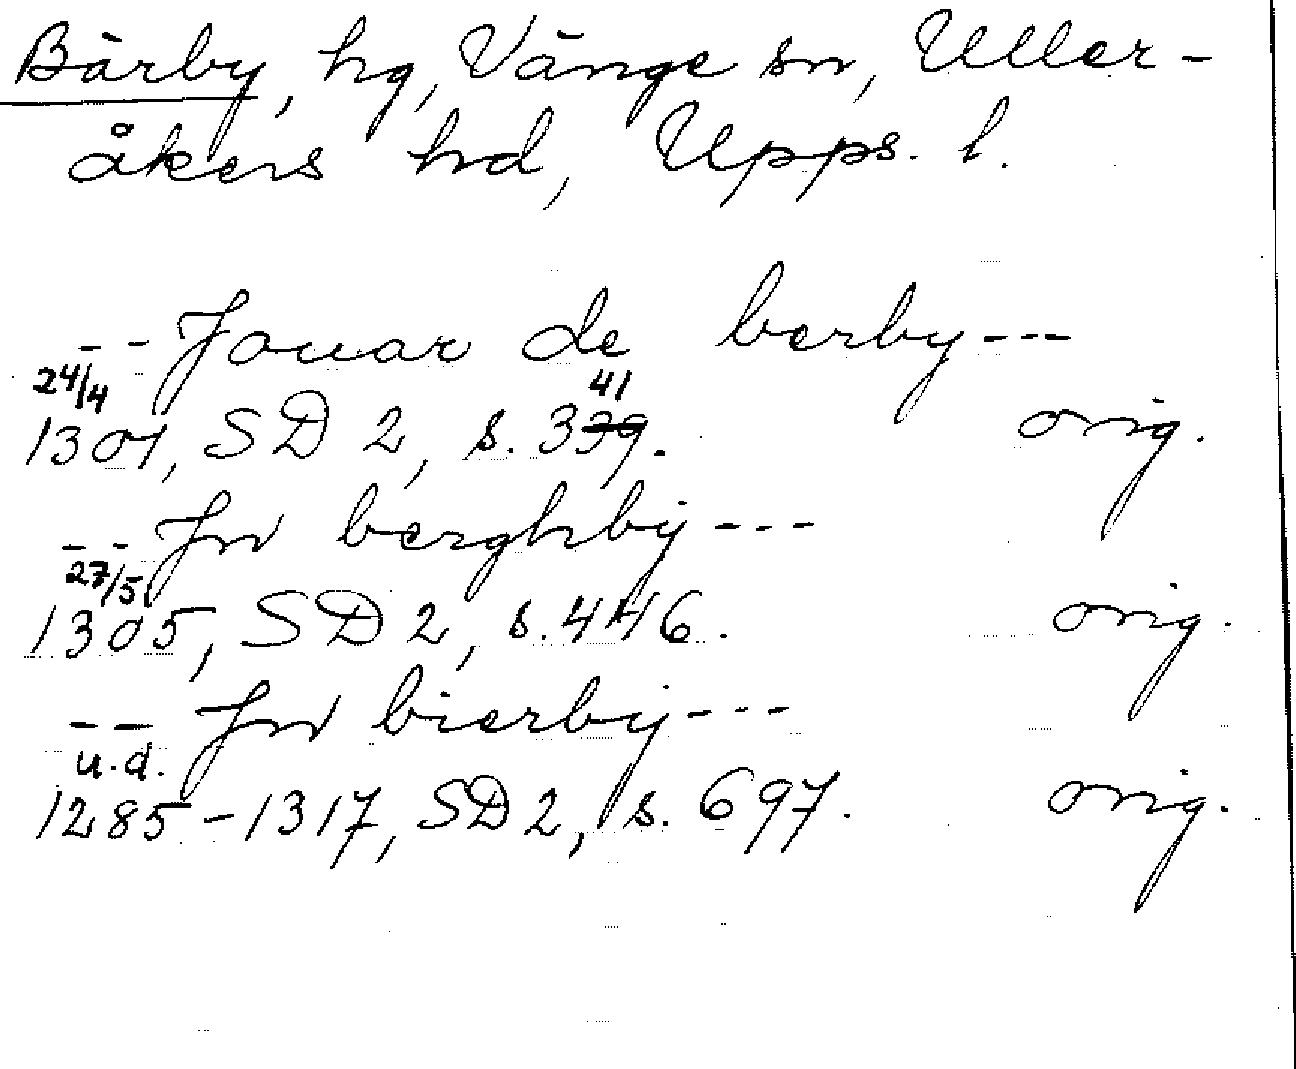 Bärby, hg, Vänge sn, Uller-
åkers hd, Upps. l.
-- Jouar de berby---
24/4 41
1301, SD 2, s. 339. orig.
-- Jn berghby---
27/5
1305, SD 2, s. 446. orig.
-- Jn bierby---
u.d.
1285-1317, SD 2, s. 697. orig.